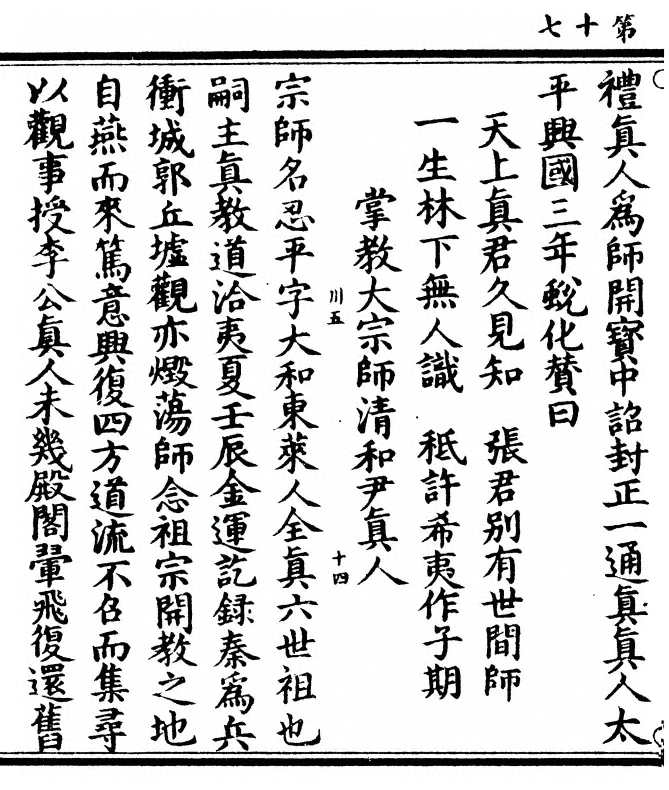 第十七
禮眞人爲師開寶中詔封正一通眞眞人太
平興國三年蛻化賛曰
天上眞君久見知　張君别有世間師
一生林下無人識　秪許希夷作子期
掌教大宗師清和尹眞人
川五
十四
宗師名忍平字大和東萊人全眞六世祖也
嗣主眞教道洽夷夏壬辰金運訖録秦爲兵
衝城郭丘墟觀亦燬蕩師念祖宗開教之地
自燕而來篤意興復四方道流不召而集尋
以觀事授李公眞人未幾殿閣翬飛復還舊